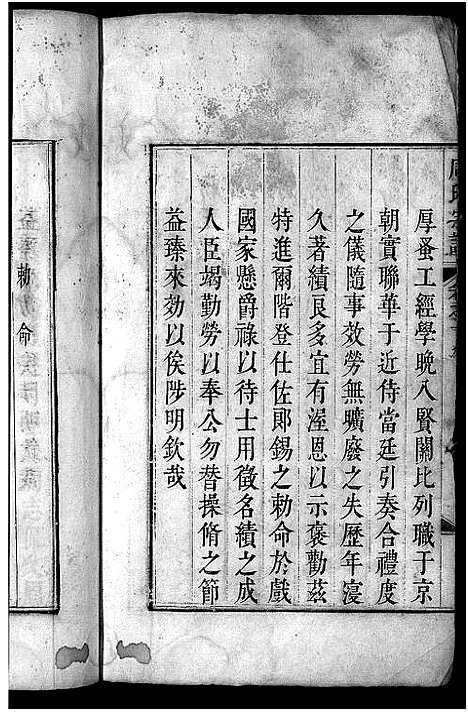 周氏宗譜
厚蚤工經學晚入賢關比列職于京
朝實聯華于近侍當廷引奏合禮度
之儀隨事效勞無曠廢之失歷年寖
久著績良多宜有渥恩以示褒勸茲
特進爾階登仕佐郎錫之勅命於戲
國家懸爵祿以待士用徵名績之成
人臣竭勤勞以奉公勿替操脩之節
益臻來効以俟陟明欽哉
勅命